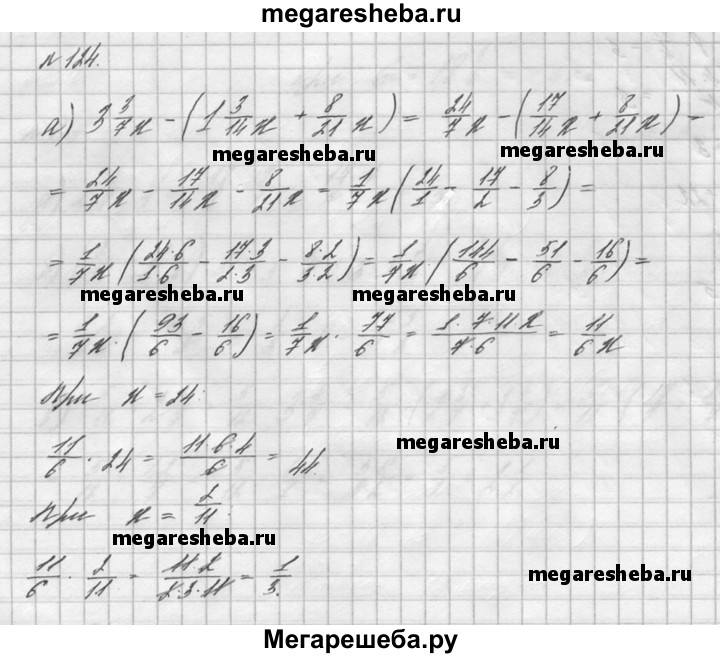 megaresheba.ru
№ 124.
а) 3 3/7 x - (1 3/14 x + 8/21 x) = 24/7 x - (17/14 x + 8/21 x) =
megaresheba.ru megaresheba.ru
= 24/7 x - 17/14 x - 8/21 x = 1/7 x (24/1 - 17/2 - 8/3) =
= 1/7 x (24·6/1·6 - 17·3/2·3 - 8·2/3·2) = 1/7 x (144/6 - 51/6 - 16/6) =
megaresheba.ru megaresheba.ru
= 1/7 x · (93/6 - 16/6) = 1/7 x · 77/6 = 1·7·11 x/7·6 = 11/6 x
При x = 24:
megaresheba.ru
11/6 · 24 = 11·6·4/6 = 44.
При x = 2/11.
megaresheba.ru
11/6 · 2/11 = 11·2/2·3·11 = 1/3.
megaresheba.ru
Мегарешеба.ру